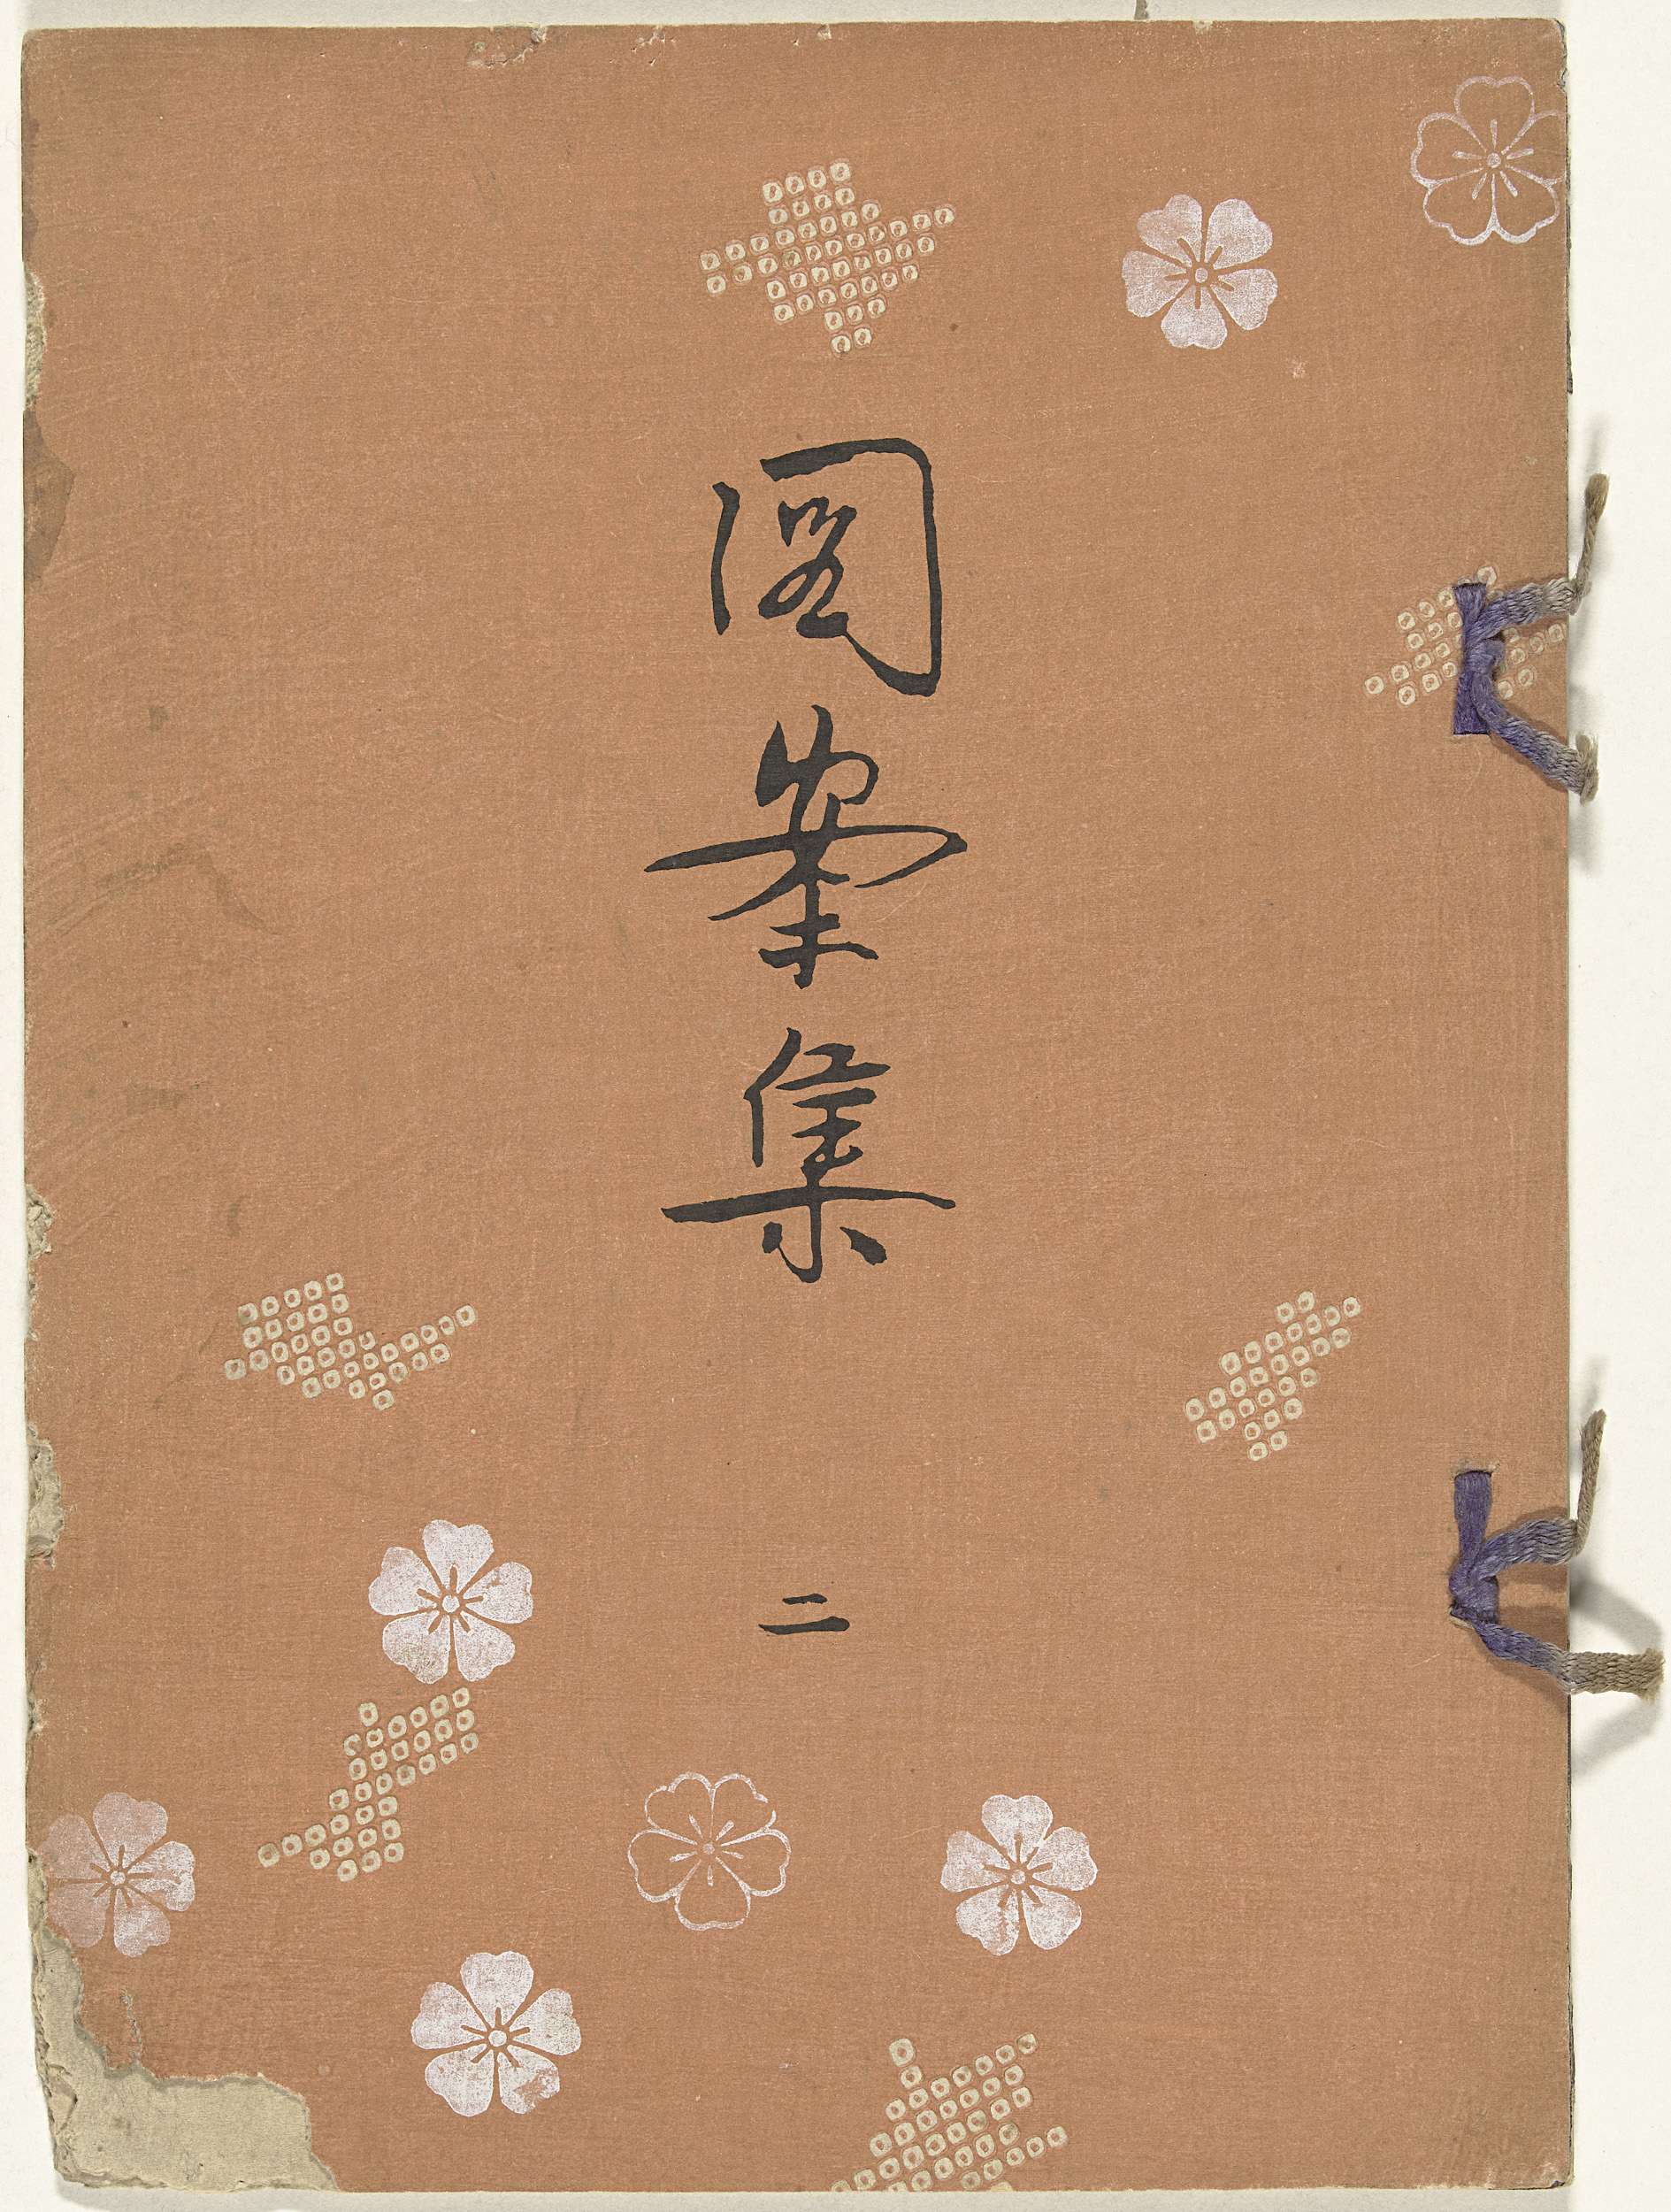 圖案集
二